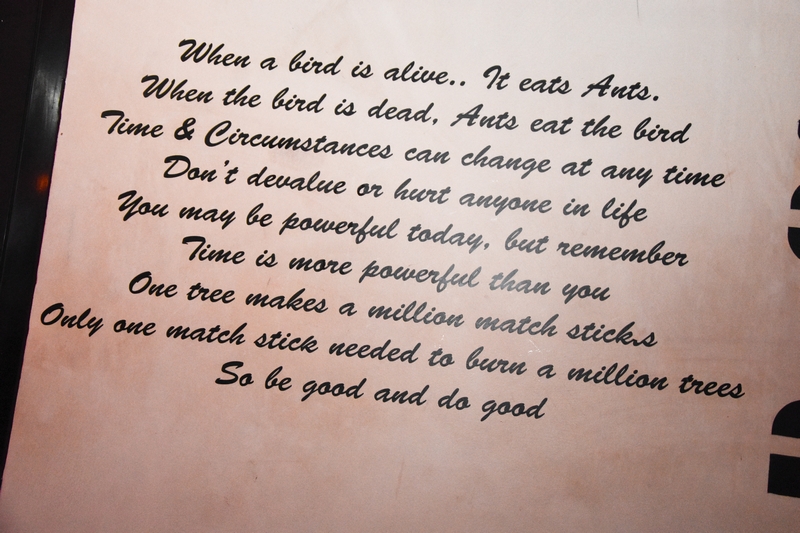 When a bird is alive.. It eats Ants.
When the bird is dead, Ants eat the bird
Time & Circumstances can change at any time
Don't devalue or hurt anyone in life
You may be powerful today, but remember
Time is more powerful than you
One tree makes a million match sticks
Only one match stick needed to burn a million trees
So be good and do good